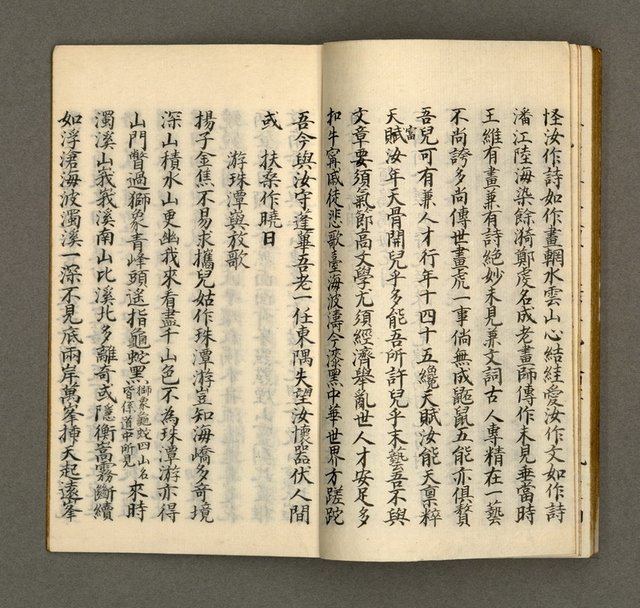 怪汝作詩如作畫輞水雲山心結絓愛汝作文如作詩
潘江陸海染餘漪鄭虔名成老畫師傳作未見垂當時
王維有畫兼有詩絕妙未見兼文詞古人專精在一藝
不尚誇多尚傳世畫虎一事倘無成鼫鼠五能亦俱贅
吾兒可有兼人才行年十四十五纔天賦汝能天稟粹
天賦汝年天骨開兒乎多能吾所許兒乎末藝吾不與
富
文章要須氣節高文學尤須經濟舉亂世人才安足多
扣牛甯戚徒悲歌臺海波濤今漆黑中華世界方蹉跎
吾今與汝守蓬蓽吾老一任東隅失望汝懷器伏人間
或 扶桑作曉日
游珠潭與放歌
揚子金焦不易求攜兒姑作珠潭游豈知海嶠多奇境
深山積水山更幽我來看盡千山色不為珠潭游亦得
山門瞥過獅象青峰頭遥指龜蛇黑獅象龜蛇四山名皆係道中所見來時
濁溪山我我溪南山比溪北多離奇或隱衡嵩霧斷續
如浮滄海波濁溪一深不見底兩岸萬峯揷天起遠峯